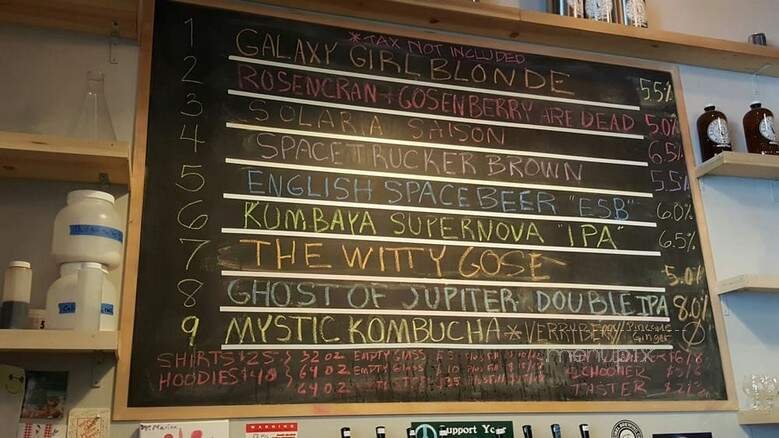 *TAX NOT INCLUDED
1 GALAXY GIRL BLONDE 5.5%
2 ROSENCRAN + GOSENBERRY ARE DEAD 5.0%
3 SOLARA SAISON 6.5%
4 SPACETRUCKER BROWN 5.5%
5 ENGLISH SPACE BEER "ESB" 6.0%
6 KUMBAYA SUPERNOVA "IPA" 6.5%
7 THE WITTY GOSE 5.0%
8 GHOST OF JUPITER DOUBLE IPA 8.0%
9 MYSTIC KOMBUCHA * VERRY BERRY / Ginger
SHIRTS $25 32 OZ EMPTY GLASS
HOODIES $48 64 OZ EMPTY GLASS SCHOONER
64 OZ TASTER
menupix
WARNING
Support Yo